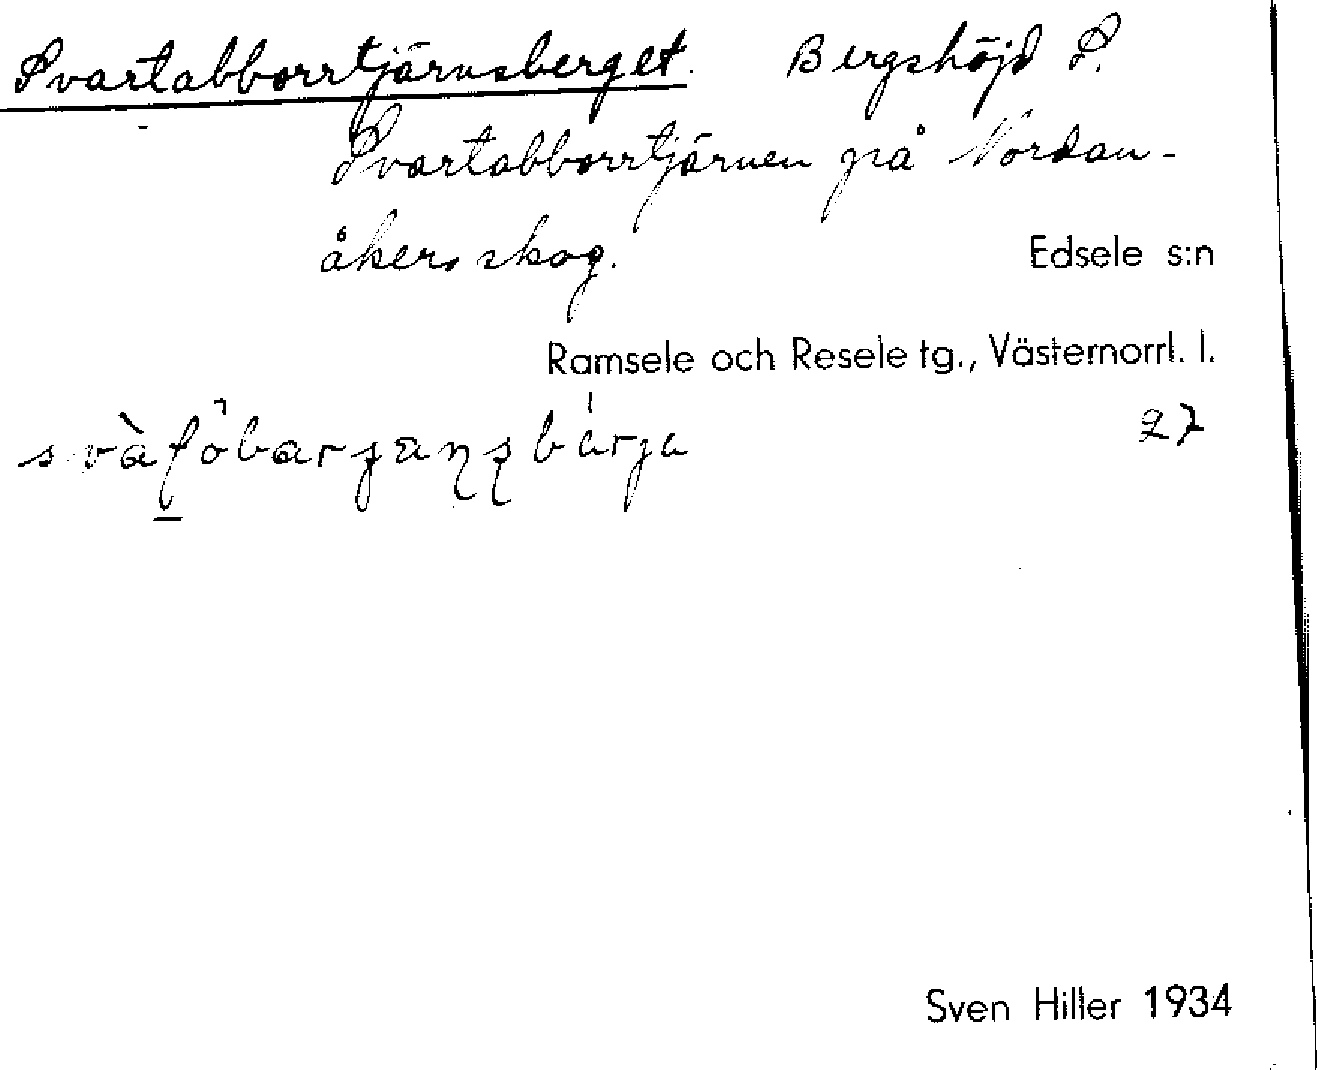 Svartabborrtjärnsberget. Bergshöjd S.
Svartabborrtjärnen på Nordan-
åkers skog.
Edsele s:n
Ramsele och Resele tg., Västernorrl. l.
27
Sven Hiller 1934